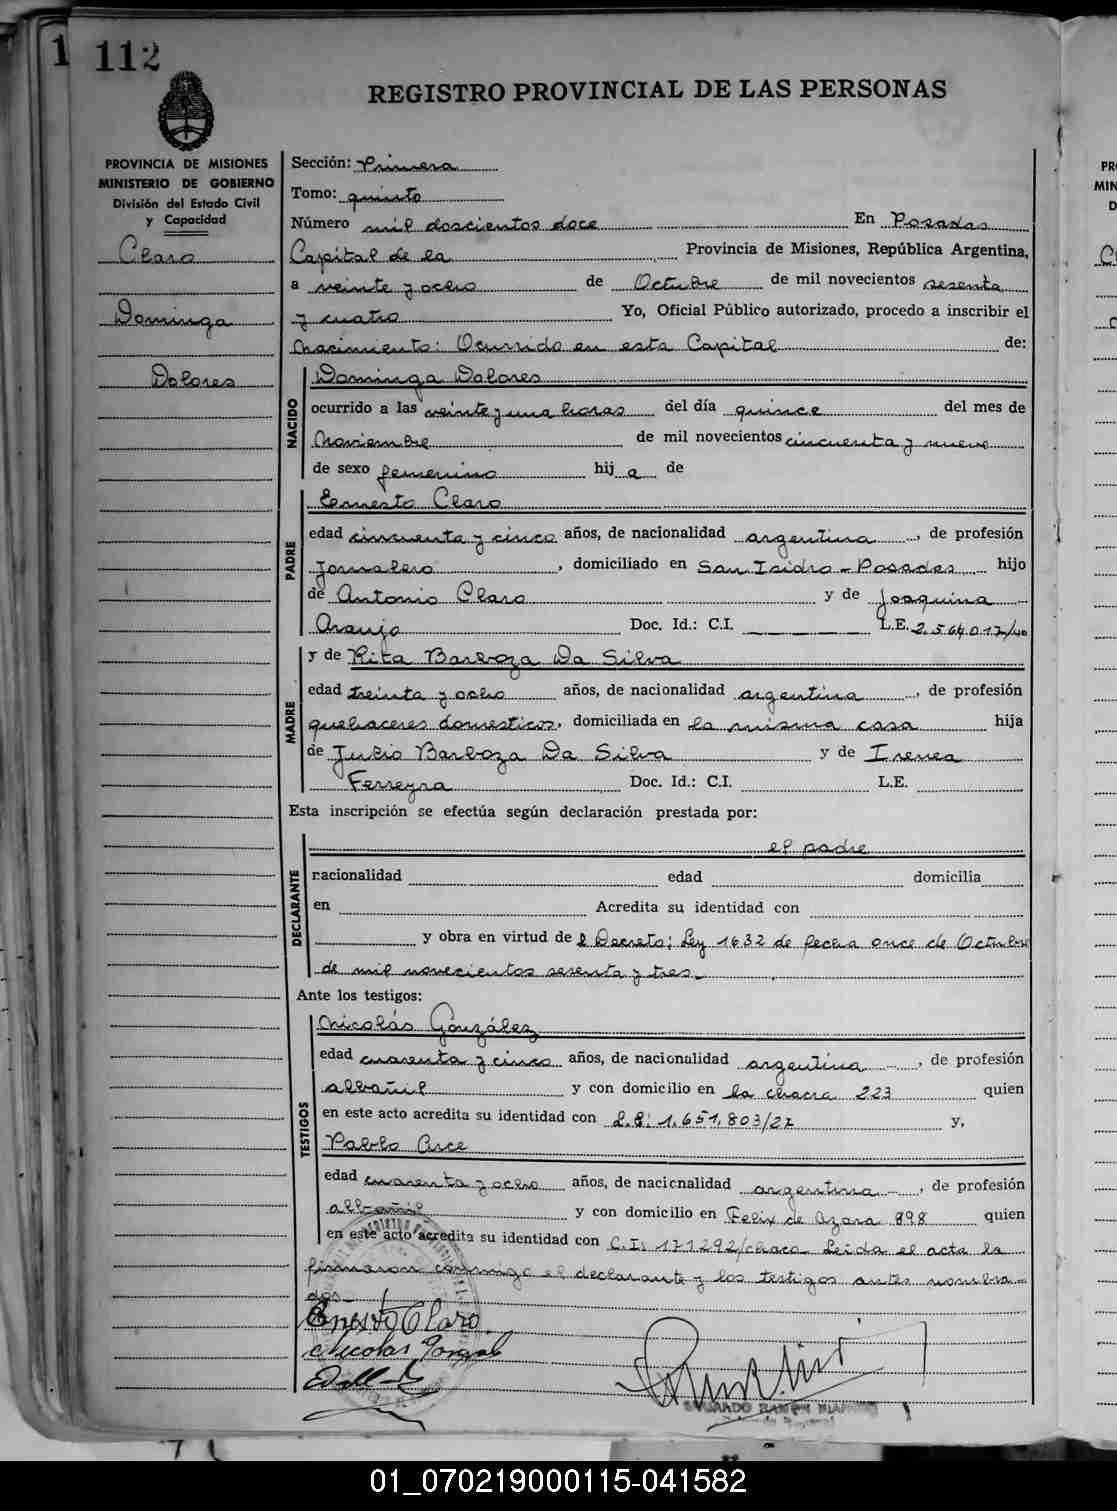 1 112
REGISTRO PROVINCIAL DE LAS PERSONAS
PROVINCIA DE MISIONES
MINISTERIO DE GOBIERNO
División del Estado Civil
y Capacidad
Claro
Dominga
Dolores
Sección: Primera
Tomo: quinto
Número mil doscientos doce En Posadas
Capital de la Provincia de Misiones, República Argentina,
a veinte y ocho de Octubre de mil novecientos sesenta
y cuatro Yo, Oficial Público autorizado, procedo a inscribir el
Nacimiento: Ocurrido en esta Capital de:
NACIDO
Dominga Dolores
ocurrido a las veinte y una horas del día quince del mes de
Noviembre de mil novecientos cincuenta y nueve
de sexo femenino hij a de
PADRE
Ernesto Claro
edad cincuenta y cinco años, de nacionalidad argentina, de profesión
Jornalero, domiciliado en San Isidro - Posadas hijo
de Antonio Claro y de Joaquina
Araujo Doc. Id.: C.I. L.E. 2.564.017/40
MADRE
y de Rita Barboza Da Silva
edad treinta y ocho años, de nacionalidad argentina, de profesión
quehaceres domesticos, domiciliada en la misma casa hija
de Julio Barboza Da Silva y de Irenea
Ferreyra Doc. Id.: C.I. L.E.
Esta inscripción se efectúa según declaración prestada por:
DECLARANTE
el padre
nacionalidad edad domicilia
en Acredita su identidad con
y obra en virtud de l Decreto; Ley 1632 de fecha once de Octubre
de mil novecientos sesenta y tres.
Ante los testigos:
TESTIGOS
Nicolás González
edad cuarenta y cinco años, de nacionalidad argentina, de profesión
albañil y con domicilio en la chacra 223 quien
en este acto acredita su identidad con L.E: 1.651.803/27 y,
Pablo Arce
edad cuarenta y ocho años, de nacionalidad argentina, de profesión
albañil y con domicilio en Felix de Azara 898 quien
en este acto acredita su identidad con C.I: 171292/chaco. Leida el acta la
firmaron conmigo el declarante y los testigos antes nombra-
dos.
Ernesto Claro.
Nicolas
01_070219000115-041582